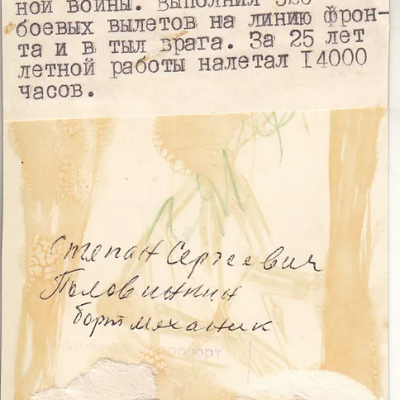 ной войны. Выполнил
боевых вылетов на линию фрон-
та и в тыл врага. За 25 лет
летной работы налетал I4000
часов.
Степан Сергеевич
Половинкин
бортмеханик